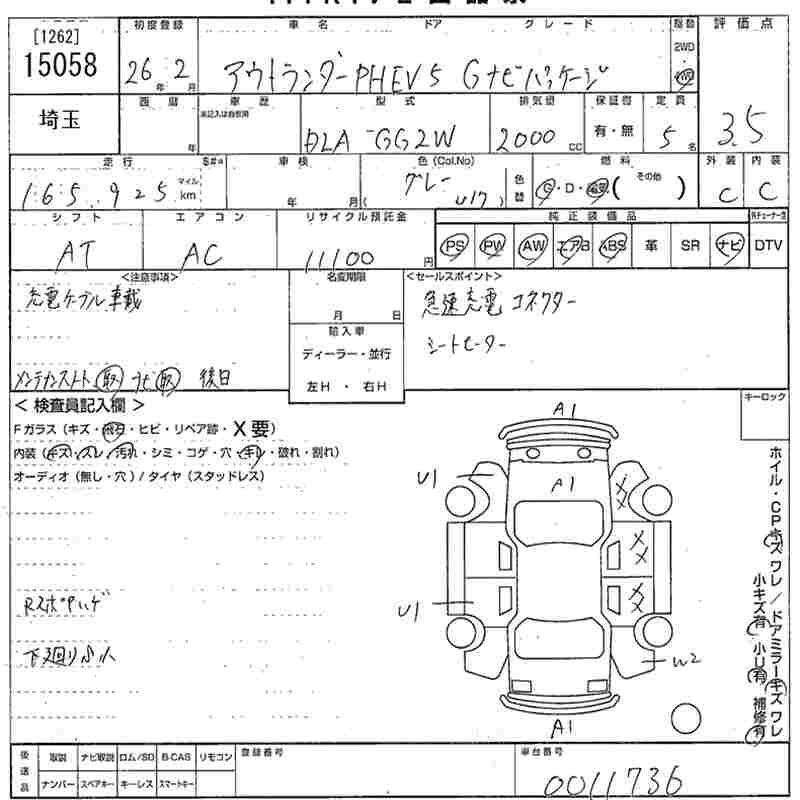 [1262]
15058
埼玉
初度登録
26年 2月
車名 ドア グレード
アウトランダーPHEV 5 Gナビパッケージ
駆動
2WD
4WD
評価点
3.5
西暦
年
車歴
未記入は自家用
型式
DLA-GG2W
排気量
2000 CC
保証書
有・無
定員
5名
走行
165,925
マイル
km
$#*
車検
年 月
色(Col.No)
グレー
( U17 )
色替
燃料
G・D・電気( その他 )
外装
C
内装
C
シフト
AT
エアコン
AC
リサイクル預託金
11100円
純正装備品
PS PW AW エアB ABS 革 SR ナビ DTV
<注意事項>
充電ケーブル車載
メンテナンスノート 取 ナビ取 後日
名変期限
月 日
輸入車
ディーラー・並行
左H ・ 右H
<セールスポイント>
急速充電コネクター
シートヒーター
<検査員記入欄>
Fガラス(キズ・飛石・ヒビ・リペア跡・X要)
内装(キズ・スレ・汚れ・シミ・コゲ・穴・キレ・破れ・割れ)
オーディオ(無し・穴)/タイヤ(スタッドレス)
Rスポ凹ハゲ
下廻り小サ
A1
A1
U1
XX
XX
XX
U1
W2
A1
キーロック
ホイル・CPキズ ワレ/ドアミラーキズ ワレ
小キズ有 小U有 補修有
後送品
取説 ナビ取説 ロム/SD B-CAS リモコン
ナンバー スペアキー キーレス スマートキー
登録番号
車台番号
0011736